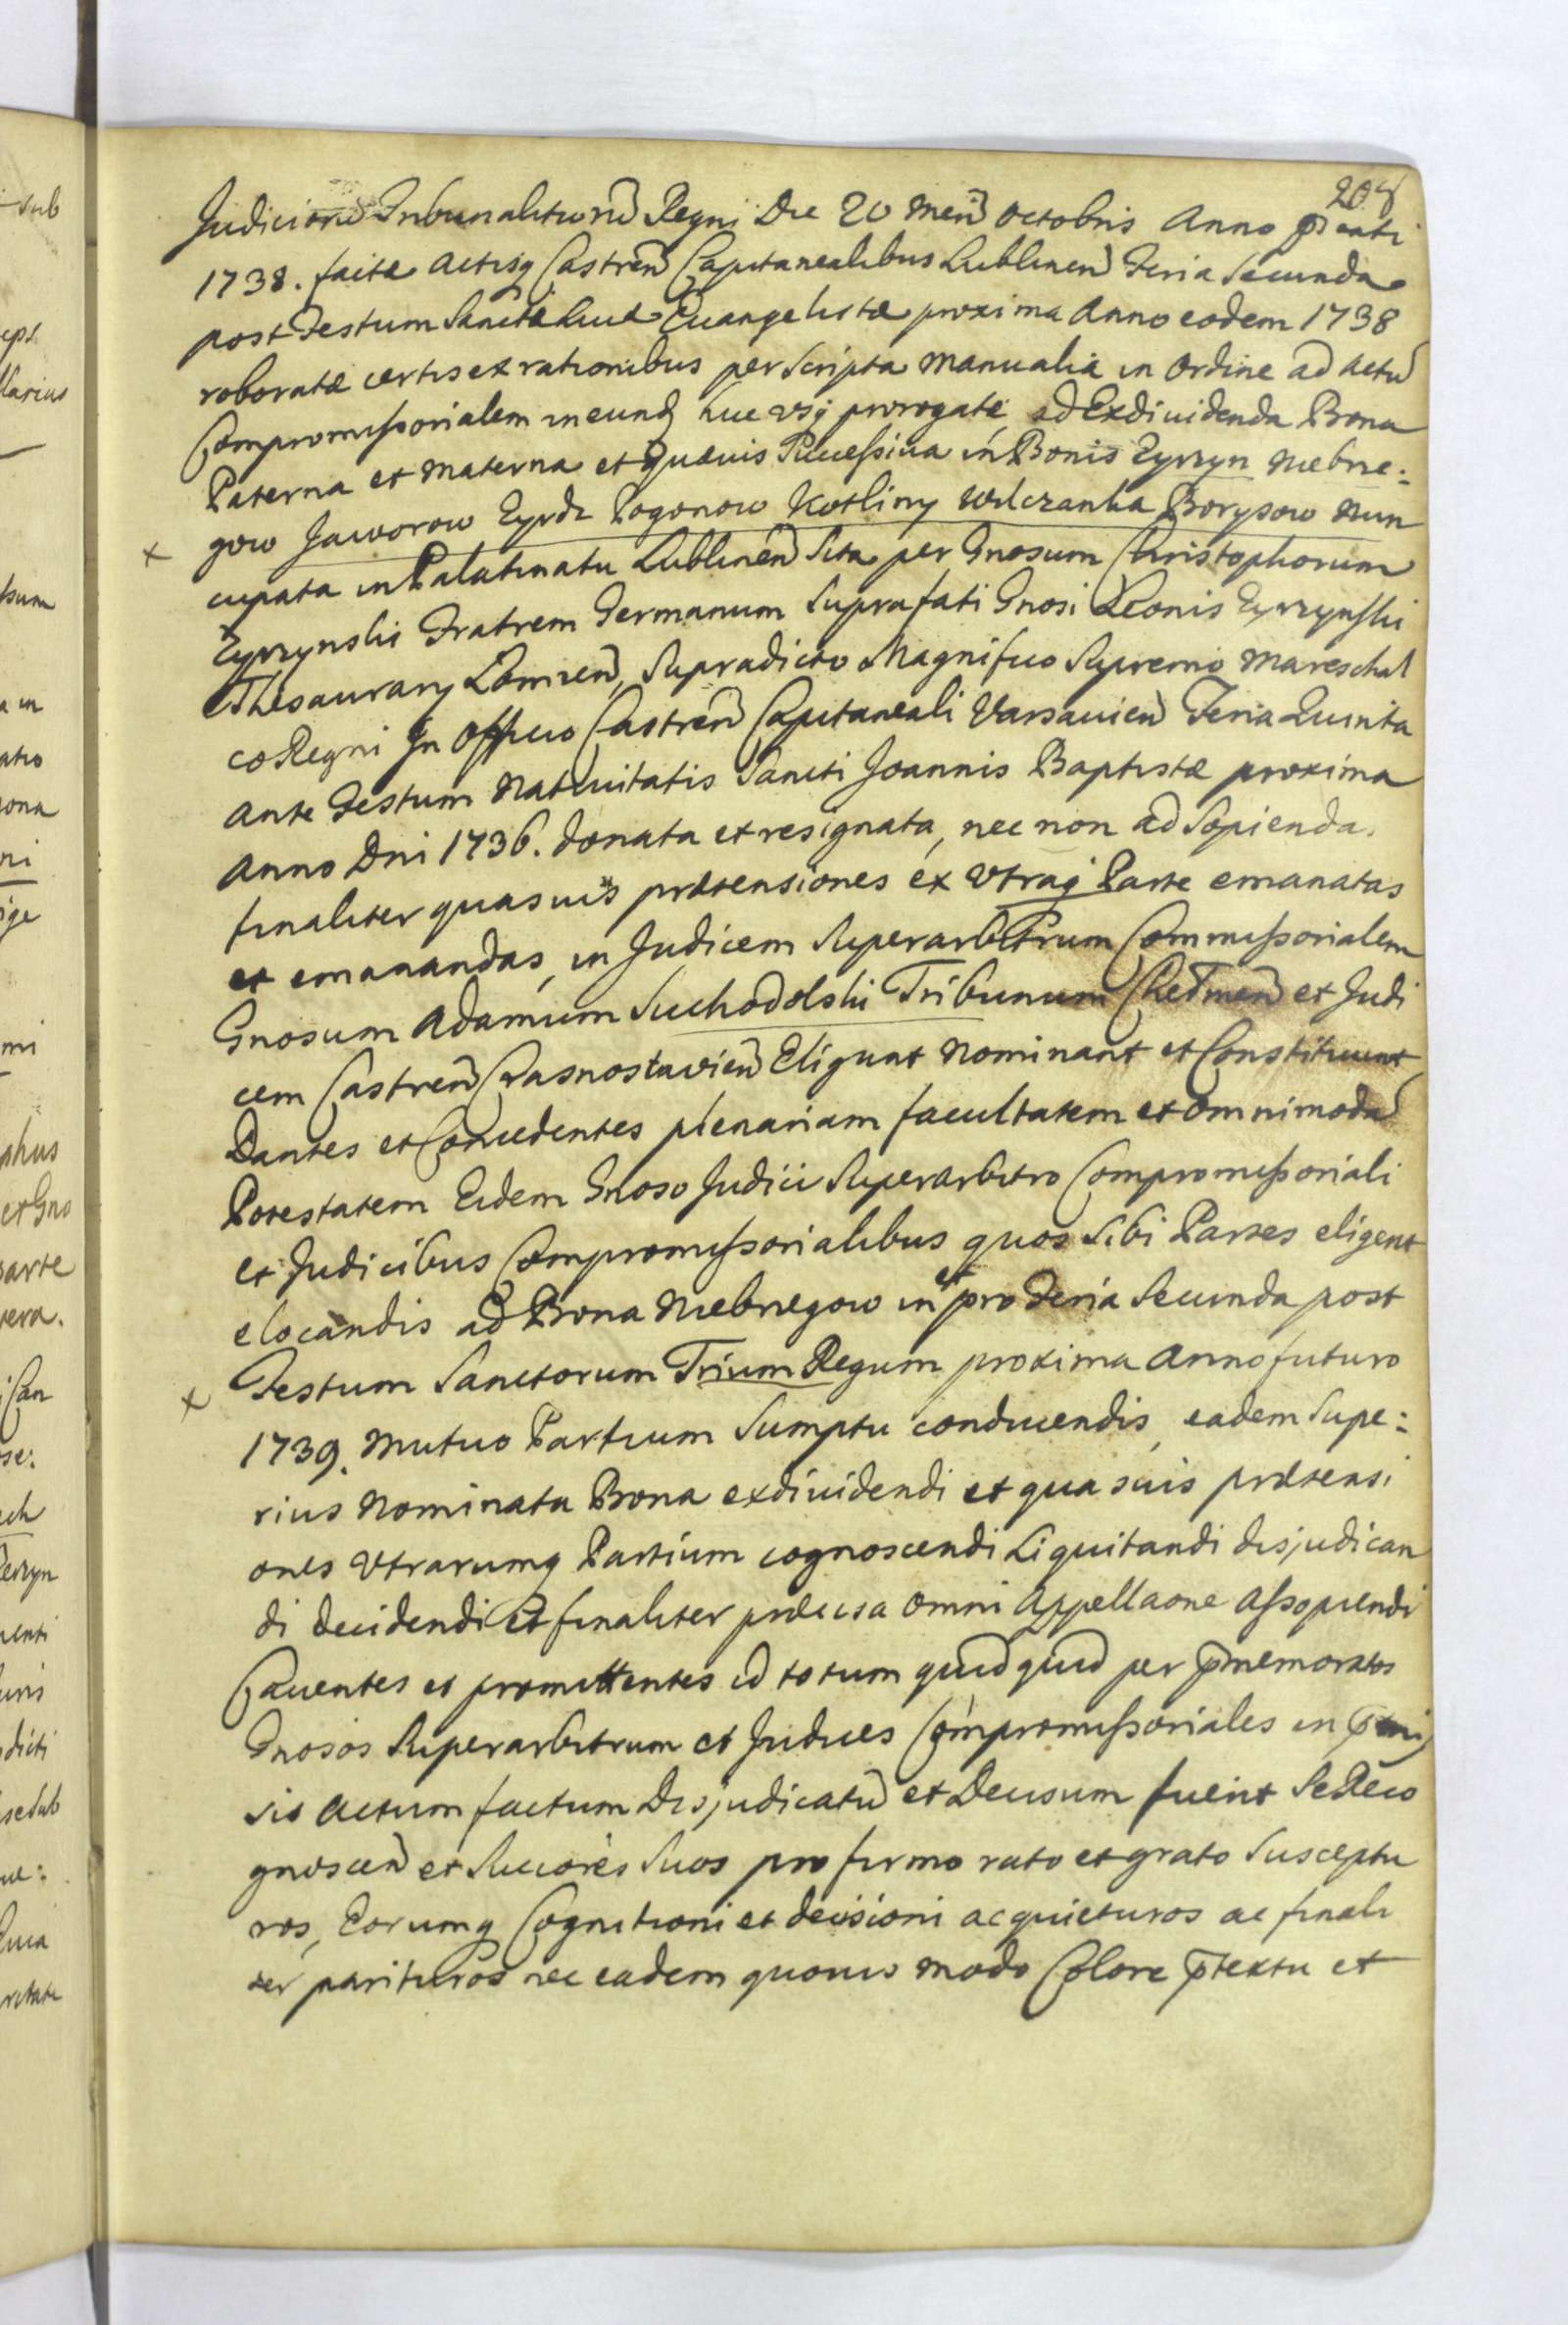 208
Judiciorũ Tribunalitiorũ Regni Die 20 Meñ Octobris Anno p̄senti
1738. faitæ Actisq Castreñ Capitanealibus Lublineñ Feria Secunda
post Festum Sancti Lucæ Euangelistæ proxima Anno eodem 1738
roboratæ certis ex rationibus per Scripta Manualia in Ordine ad actũ
Compromissorialem ineund huc usq prorogatæ, ad Exdiuidenda Bona
Paterna et Materna et quæuis Successiua in Bonis Zyrzyn Niebrze:
gow Jaworow Zyrdz Pogonow Kotliny Wilczanka Borysow Nun
cupata in Palatinatu Lublineñ Sita per Gnosum Christophorum
Zyrzynski Fratrem Germanum Suprafati Gnosi Leonis Zyrzynski
Thesaurarij Łomzeñ, Supradicto Magnifico Supremo Mareschal
co Regni In Officio Castreñ Capitaneali Varsauieñ Feria Quinta
ante Festum Natiuitatis Sancti Joannis Baptistæ proxima
Anno Dni 1736. donata et resignata, nec non ad Sopienda
finaliter quasuis prætensiones ex Utraq Parte emanatas
et emanandas, in Judicem Superarbitrum Commissorialem
Gnosum Adamum Suchodolski Tribunum Chelmeñ et Judi
cem Castreñ Crasnostavieñ Eligunt Nominant et Constituunt
Dantes et Concedentes plenariam facultatem et omnimodã
Potestatem Eidem Gnoso Judici Superarbitro Compromissoriali
et Judicibus Compromissorialibus quos Sibi Partes eligent
elocandis ad Bona Niebrzegow in et pro Feria Secunda post
Festum Sanctorum Trium Regum proxima Anno futuro
1739. Mutuo Partium Sumptu conducendis, eadem Supe:
rius Nominata Bona exdiuidendi et quasuis prætensi
ones Utrarumq Partium cognoscendi Liquitandi disjudican
di decidendi Et finaliter præcisa omni Appellaone Assopiendi
Cauentes et promittentes id totum quidquid per p̄memoratos
Gnosos Superarbitrum et Judices Compromissoriales in p̄mis
sis Actum factum Disjudicatũ et Decisum fuerit Se Reco
gnosceñ et Succores Suos pro firmo rato et grato Susceptu
ros, Eorumq Cognitioni et decisioni acquieturos ac finali
ter parituros nec eadem quouis modo Colore p̄textu et